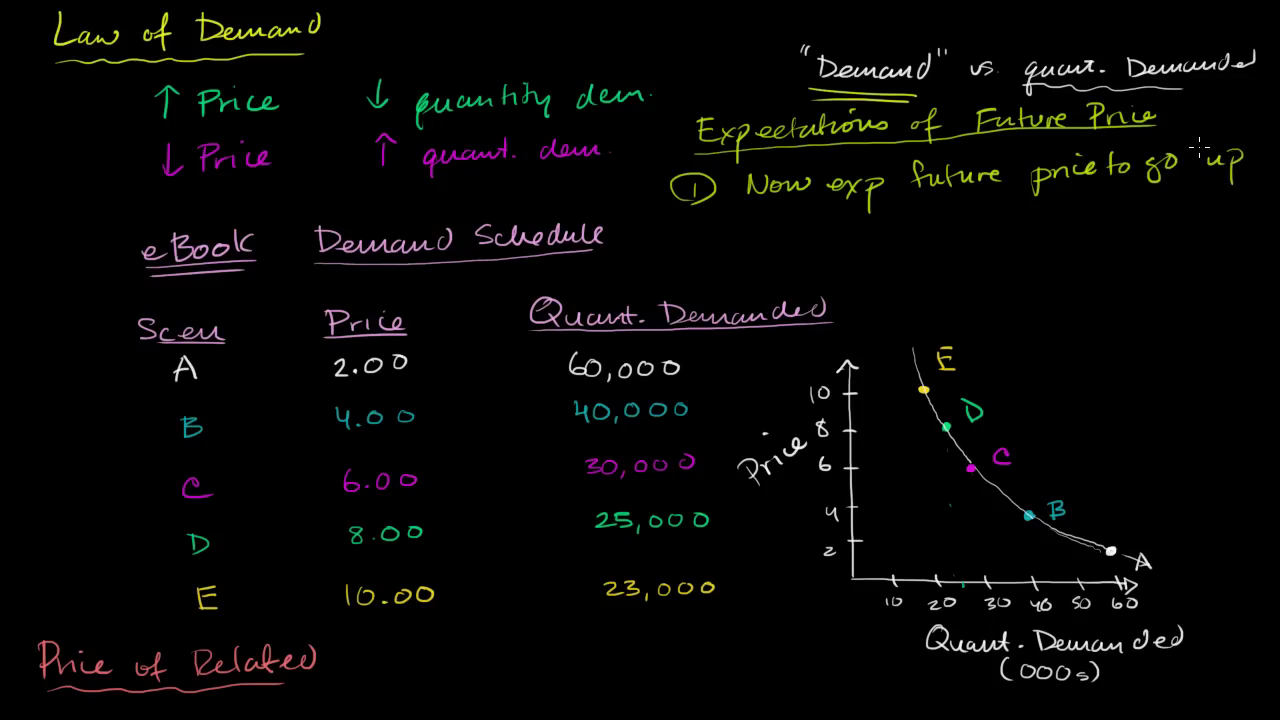 Law of Demand
↑ Price ↓ quantity dem.
↓ Price ↑ quant. dem.
"Demand" vs. quant. Demanded
Expectations of Future Price
① Now exp future price to go up
eBook Demand Schedule
Scen Price Quant. Demanded
A 2.00 60,000
B 4.00 40,000
C 6.00 30,000
D 8.00 25,000
E 10.00 23,000
Price of Related
E
D
C
B
A
Price
10
8
6
4
2
10 20 30 40 50 60
Quant. Demanded
(000s)